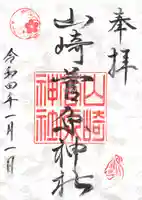 奉拝
山崎菅原神社
山崎
神社
令和四年一月一日